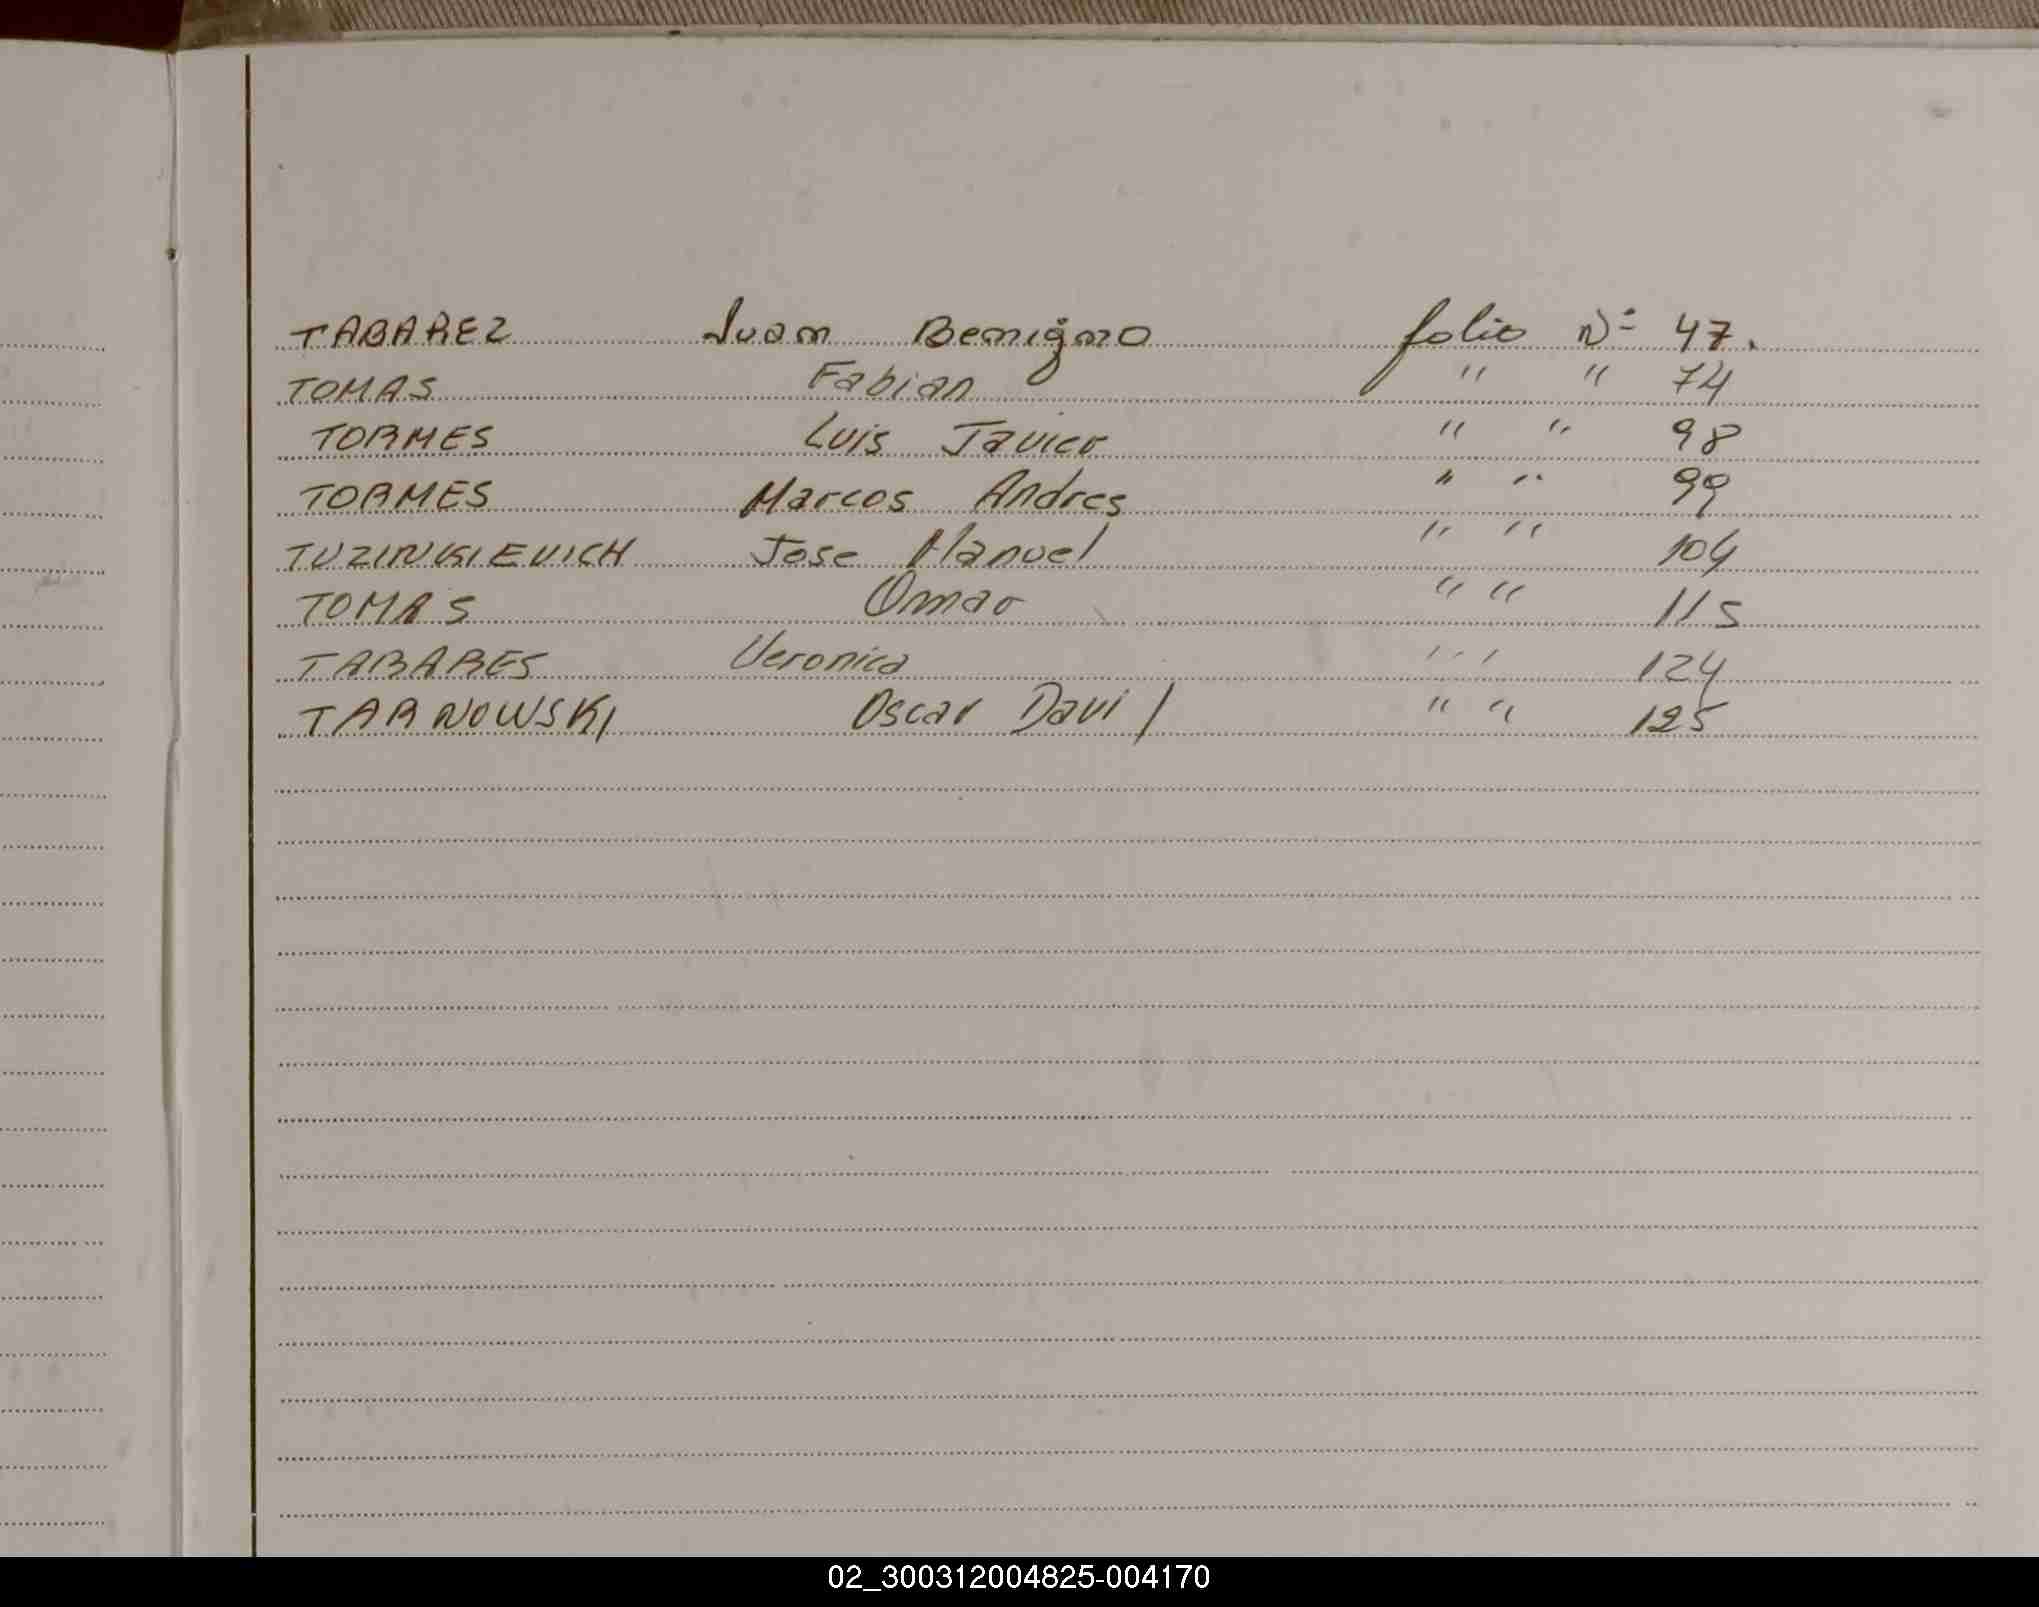 TABAREZ Juan Benigno folio Nº 47.
TOMAS Fabian " " 74
TORMES Luis Javier " " 98
TORMES Marcos Andres " " 99
TUZINKIEVICH Jose Manuel " " 104
TOMAS Omar " " 115
TABARES Veronica " " 124
TARNOWSKI Oscar David " " 125
02_300312004825-004170